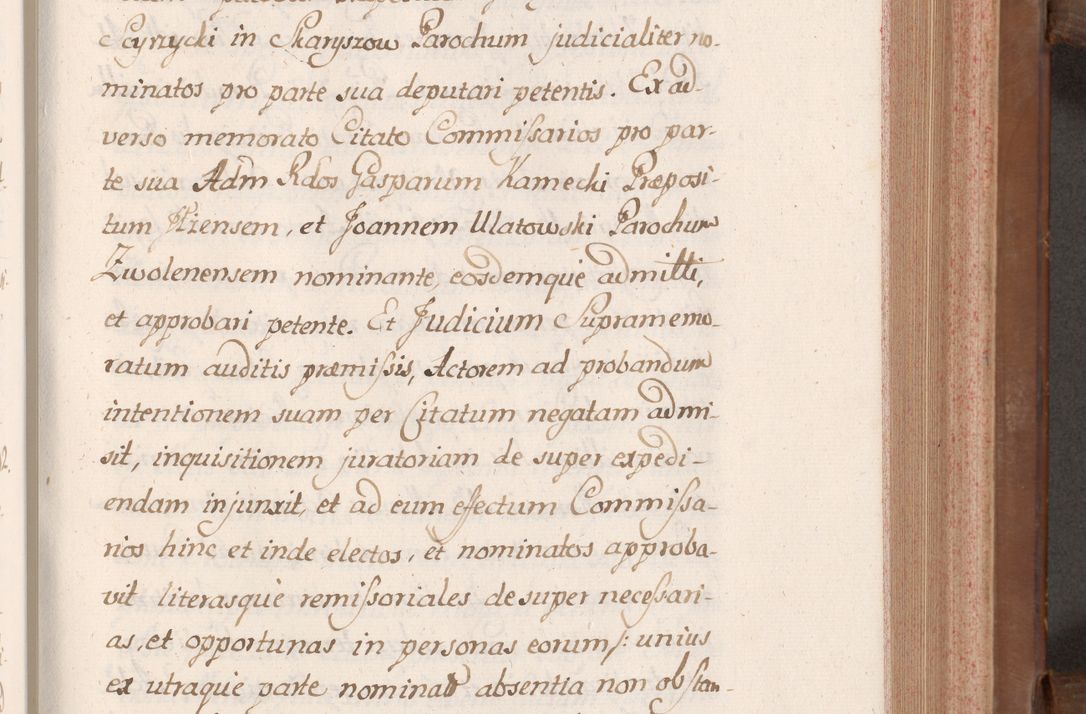 Scyrzycki in Skaryszow Parochum judicialiter no-
minatos pro parte sua deputari petentis. Ex ad-
verso memorato Citato Commissarios pro par-
te sua Adm Rdos Gasparum Kamecki Præposi-
tum Iłżensem, et Joannem Ulatowski Parochum
Zwolenensem nominante, eosdemque admitti,
et approbari petente. Et Judicium Supramemo-
ratum auditis præmissis, Actorem ad probandum
intentionem suam per Citatum negatam admi-
sit, inquisitionem juratoriam de super expedi-
endam injunxit, et ad eum effectum Commissa-
rios hinc et inde electos, et nominatos approba-
vit literasque remissoriales desuper necessari-
as, et opportunas in personas eorum /: unius
ex utraque parte nominat absentia non obstan-